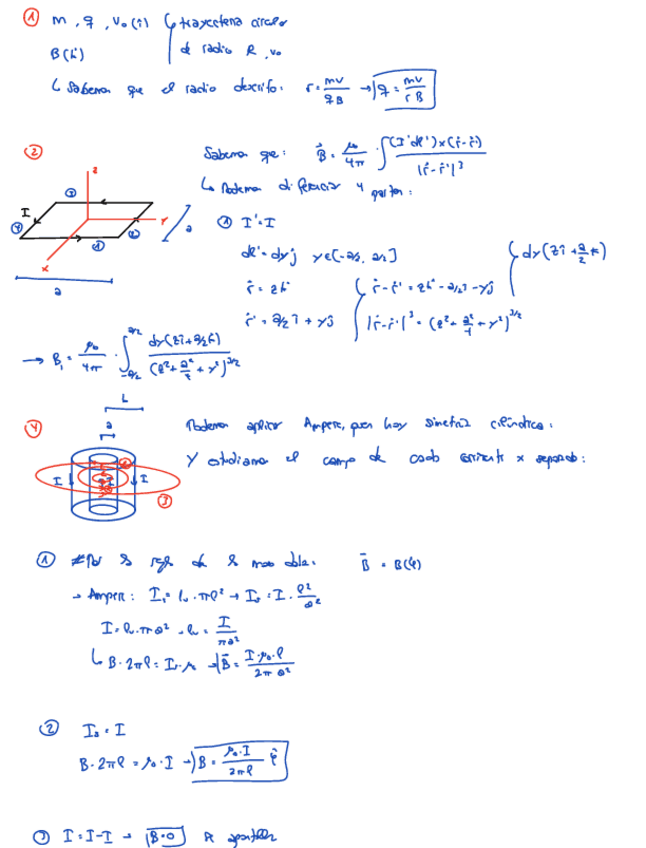 ① m, q, v₀(î) ↳ trayectoria circular
B(k̂) de radio R, v₀
↳ Sabemos que el radio descrito: r = mv/qB → q = mv/rB
② Sabemos que: B⃗ = μ₀/4π · ∫ (I'dl')×(r̂-r̂')/|r̂-r̂'|³
↳ Podemos diferenciar 4 partes:
① I' = I
dl' = dyĵ y∈[-a/2, a/2]
r̂ = zk̂
r̂' = a/2 î + yĵ
r̂-r̂' = zk̂ - a/2 î - yĵ
|r̂-r̂'|³ = (z² + a²/4 + y²)^3/2
dy(zî + a/2 k̂)
z
I ③
④ ② y
①
x
a
a
→ B₁ = μ₀/4π · ∫_{-a/2}^{a/2} dy(zî + a/2 k̂)/(z² + a²/4 + y²)^3/2
④ Podemos aplicar Ampere, pues hay simetría cilíndrica:
Y estudiamos el campo de cada corriente x separado:
b
a
I I I
③
① Por la regla de la mano dcha: B⃗ = B(φ)
→ Ampere: I₁ = · πρ² → = I · ρ²/a²
I = · πa² → = I/πa²
↳ B · 2πρ = I₁ · μ₀ → B⃗ = I·μ₀·ρ/2πa²
② I₂ = I
B · 2πρ = μ₀ · I → B = μ₀·I/2πρ φ̂
③ I = I-I → B=0